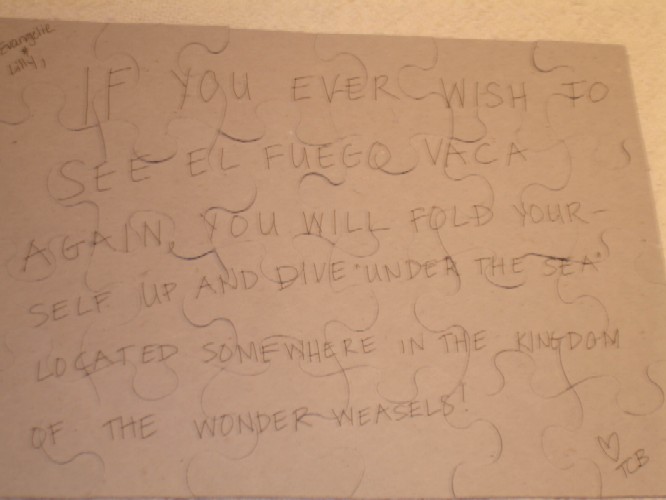 Evangelie
♥
Lilly,
IF YOU EVER WISH TO
SEE EL FUEGO VACA
AGAIN, YOU WILL FOLD YOUR-
SELF UP AND DIVE "UNDER THE SEA"
LOCATED SOMEWHERE IN THE KINGDOM
OF THE WONDER WEASELS!
♡ TCB